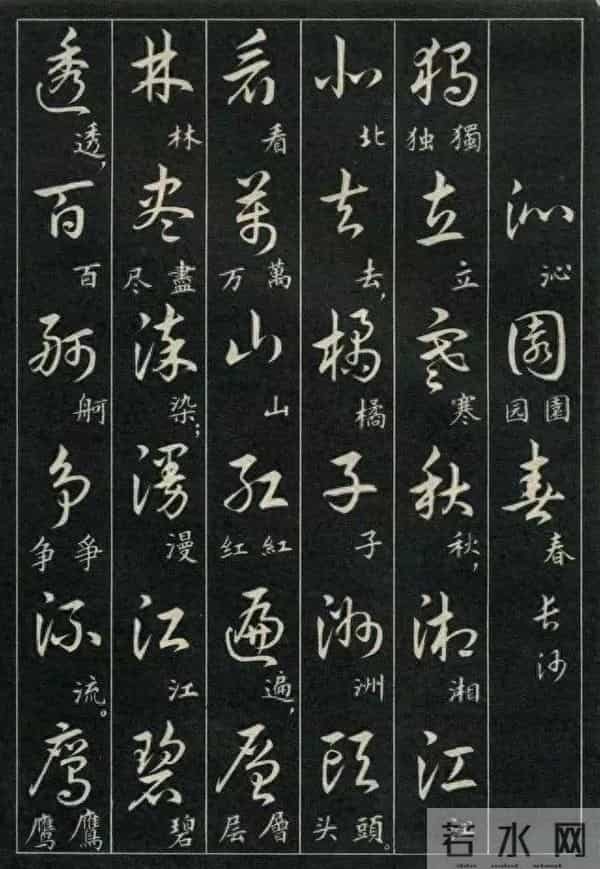 沁 沁 園 園 园 春 春 长沙
獨 獨 独 立 立 寒 寒 秋 秋， 湘 湘 江 江
北 北 去 去， 橘 橘 子 子 洲 洲 頭 頭。 头
看 看 萬 萬 万 山 山 紅 紅 红 遍 遍， 層 層 层
林 林 盡 盡 尽 染 染； 漫 漫 江 江 碧 碧
透 透， 百 百 舸 舸 爭 爭 争 流 流。 鷹 鷹 鹰
若水网